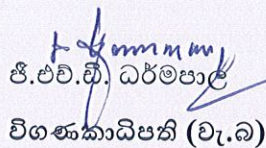 ජී.එච්.ඩී. ධර්මපාල
විගණකාධිපති (වැ.බ)